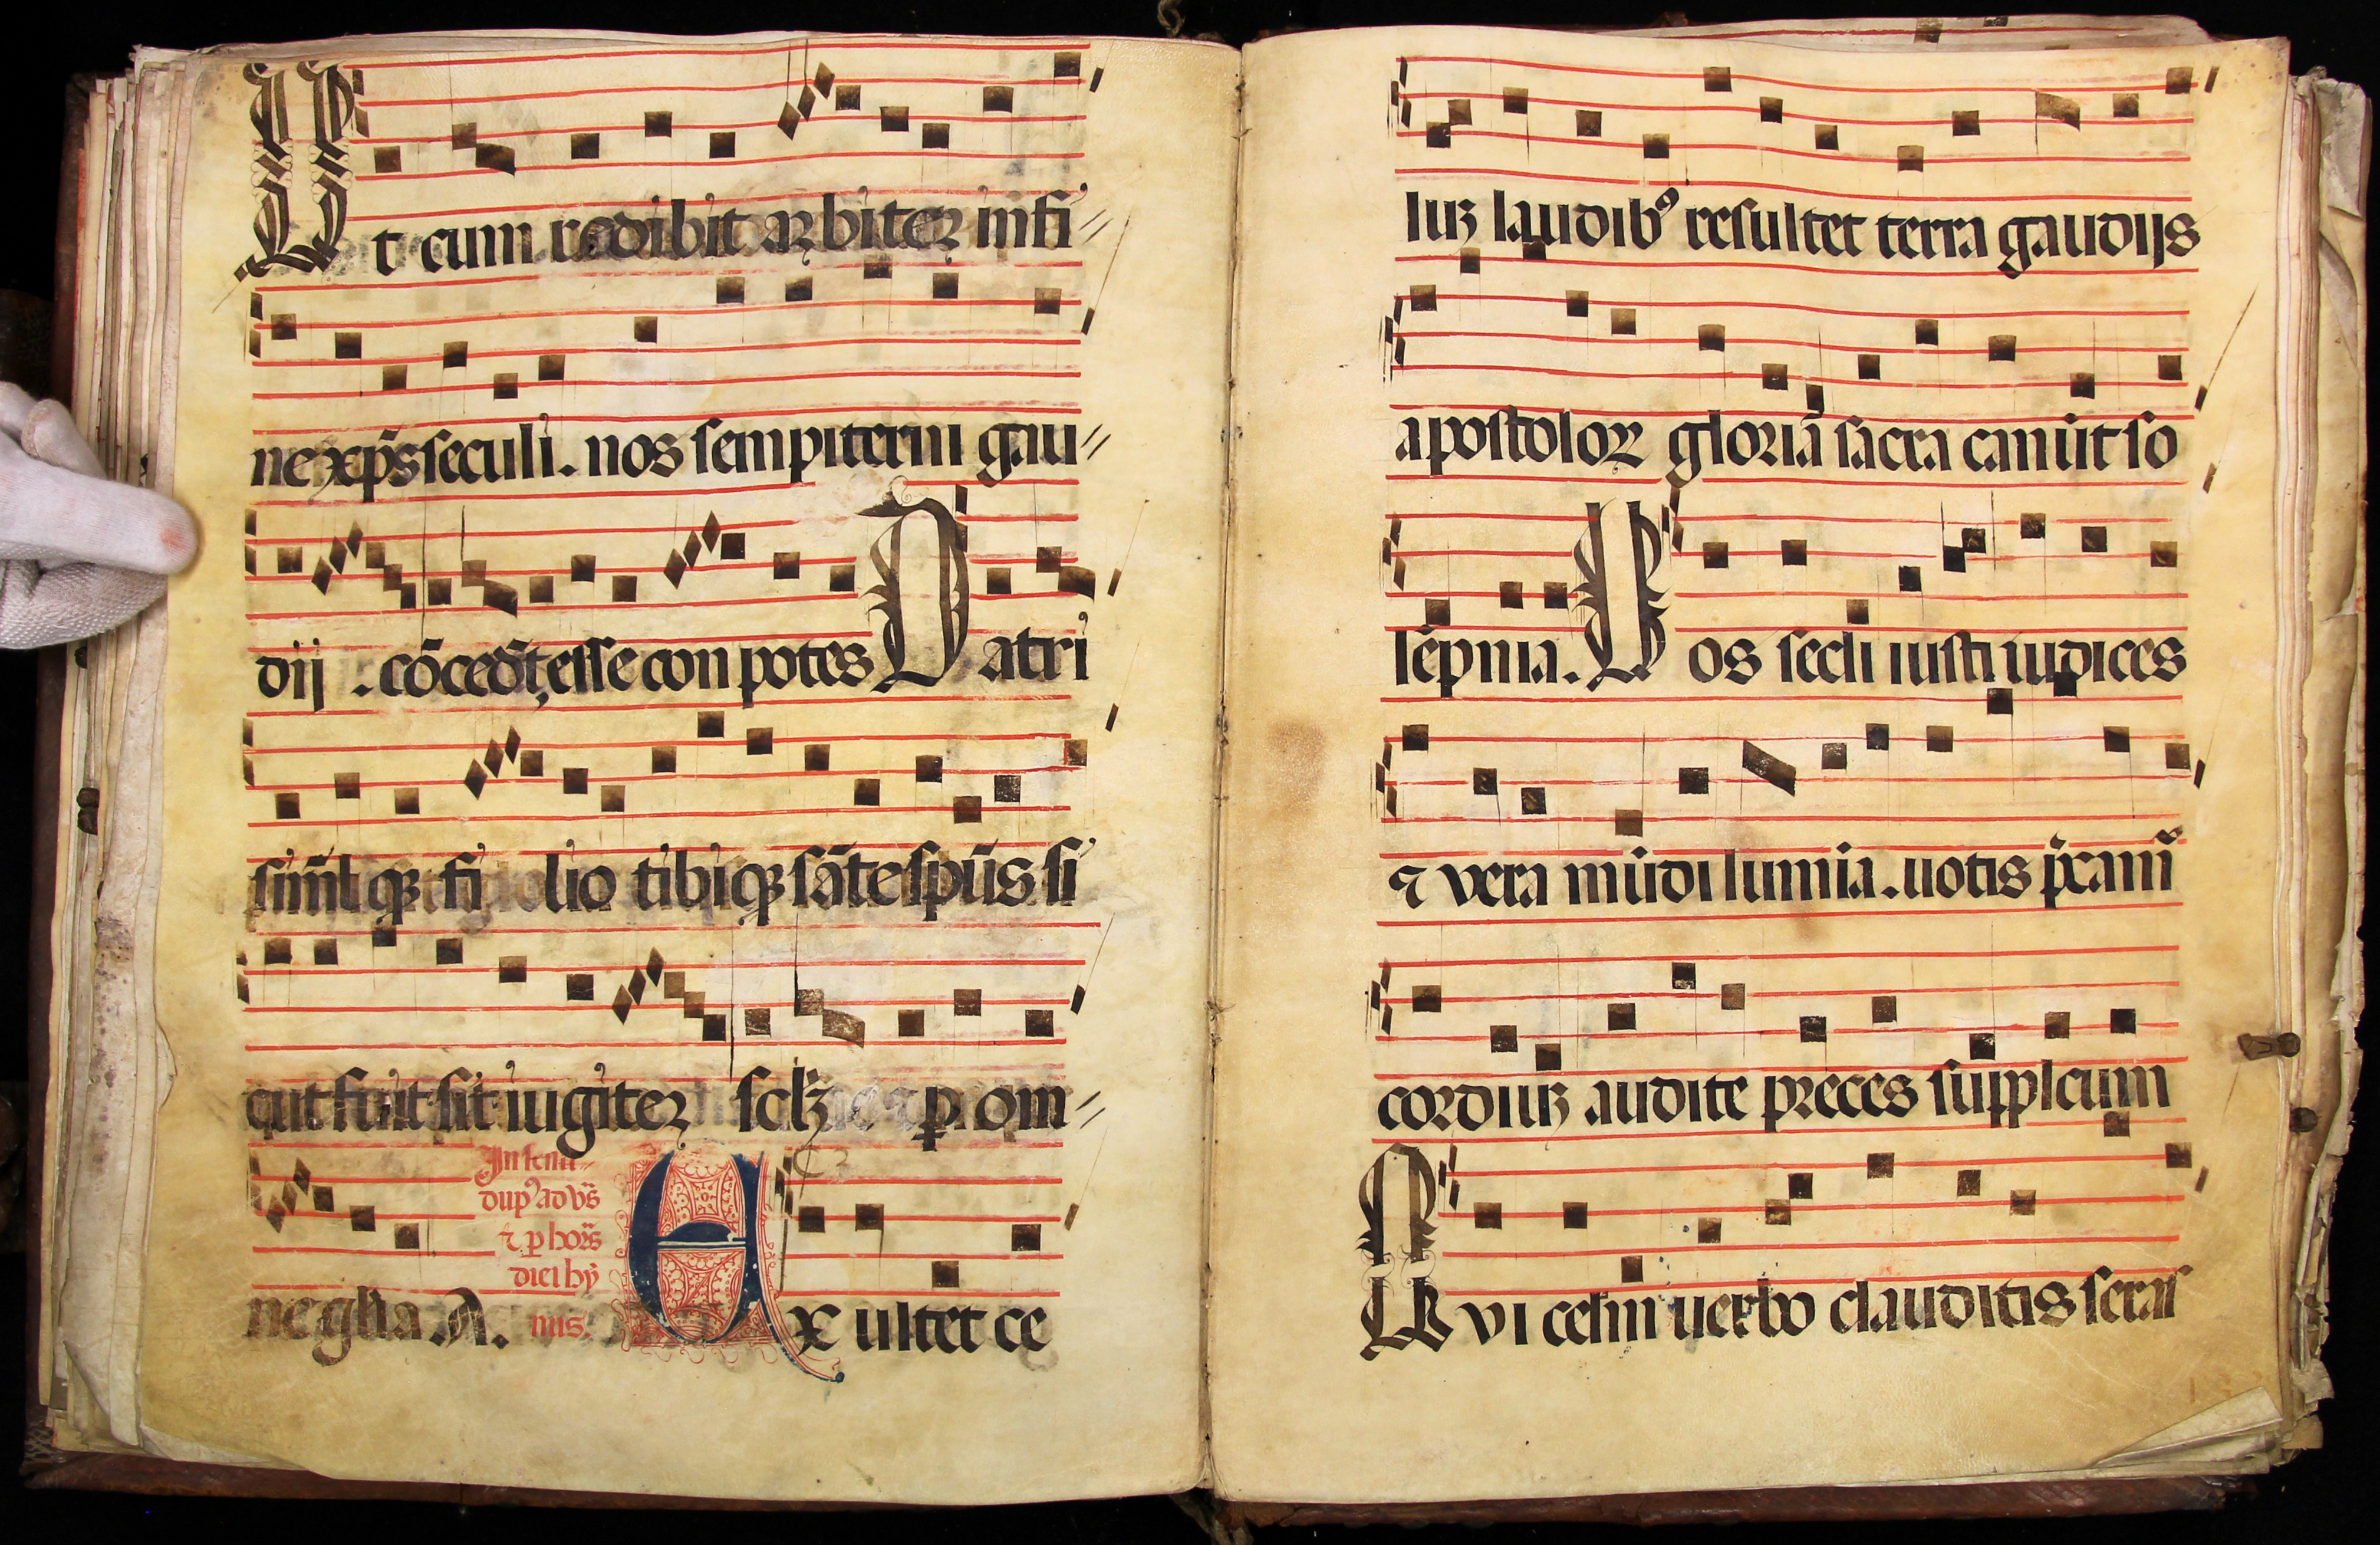 Vt cum redibit arbiter infi
ne xp̄s seculi. nos sempiterni gau
dij . cōcedt esse conpotes Patri
simīl qꝫ fi olio tibiqꝫ sāte spūs si
cut fuit sit iugiter sclꝫ ꝑ om
ne glīa A.
In fcui
dup ad vs̄
⁊ ꝑ hors
diei hȳ
nis.
Exultet ce
luꝫ laudibꝰ resultet terra gaudijs
apostoloꝝ gloriā sacra canūt so
lēpnia. Vos secli iusti iudices
⁊ vera mūdi lumīa. uotis p̄cam̄
cordiuꝫ audite preces supplcum
Qvi celum uerbo clauditis seras